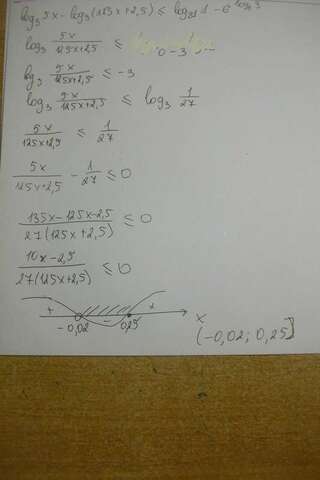 log₃ 5x - log₃(125x+2,5) ≤ log₈₁ 1 -
log₃ 5x/(125x+2,5) ≤ 0 - 3
log₃ 5x/(125x+2,5) ≤ -3
log₃ 5x/(125x+2,5) ≤ log₃ 1/27
5x/(125x+2,5) ≤ 1/27
5x/(125x+2,5) - 1/27 ≤ 0
(135x-125x-2,5)/(27(125x+2,5)) ≤ 0
(10x-2,5)/(27(125x+2,5)) ≤ 0
+ - + x
-0,02 0,25
(-0,02; 0,25]